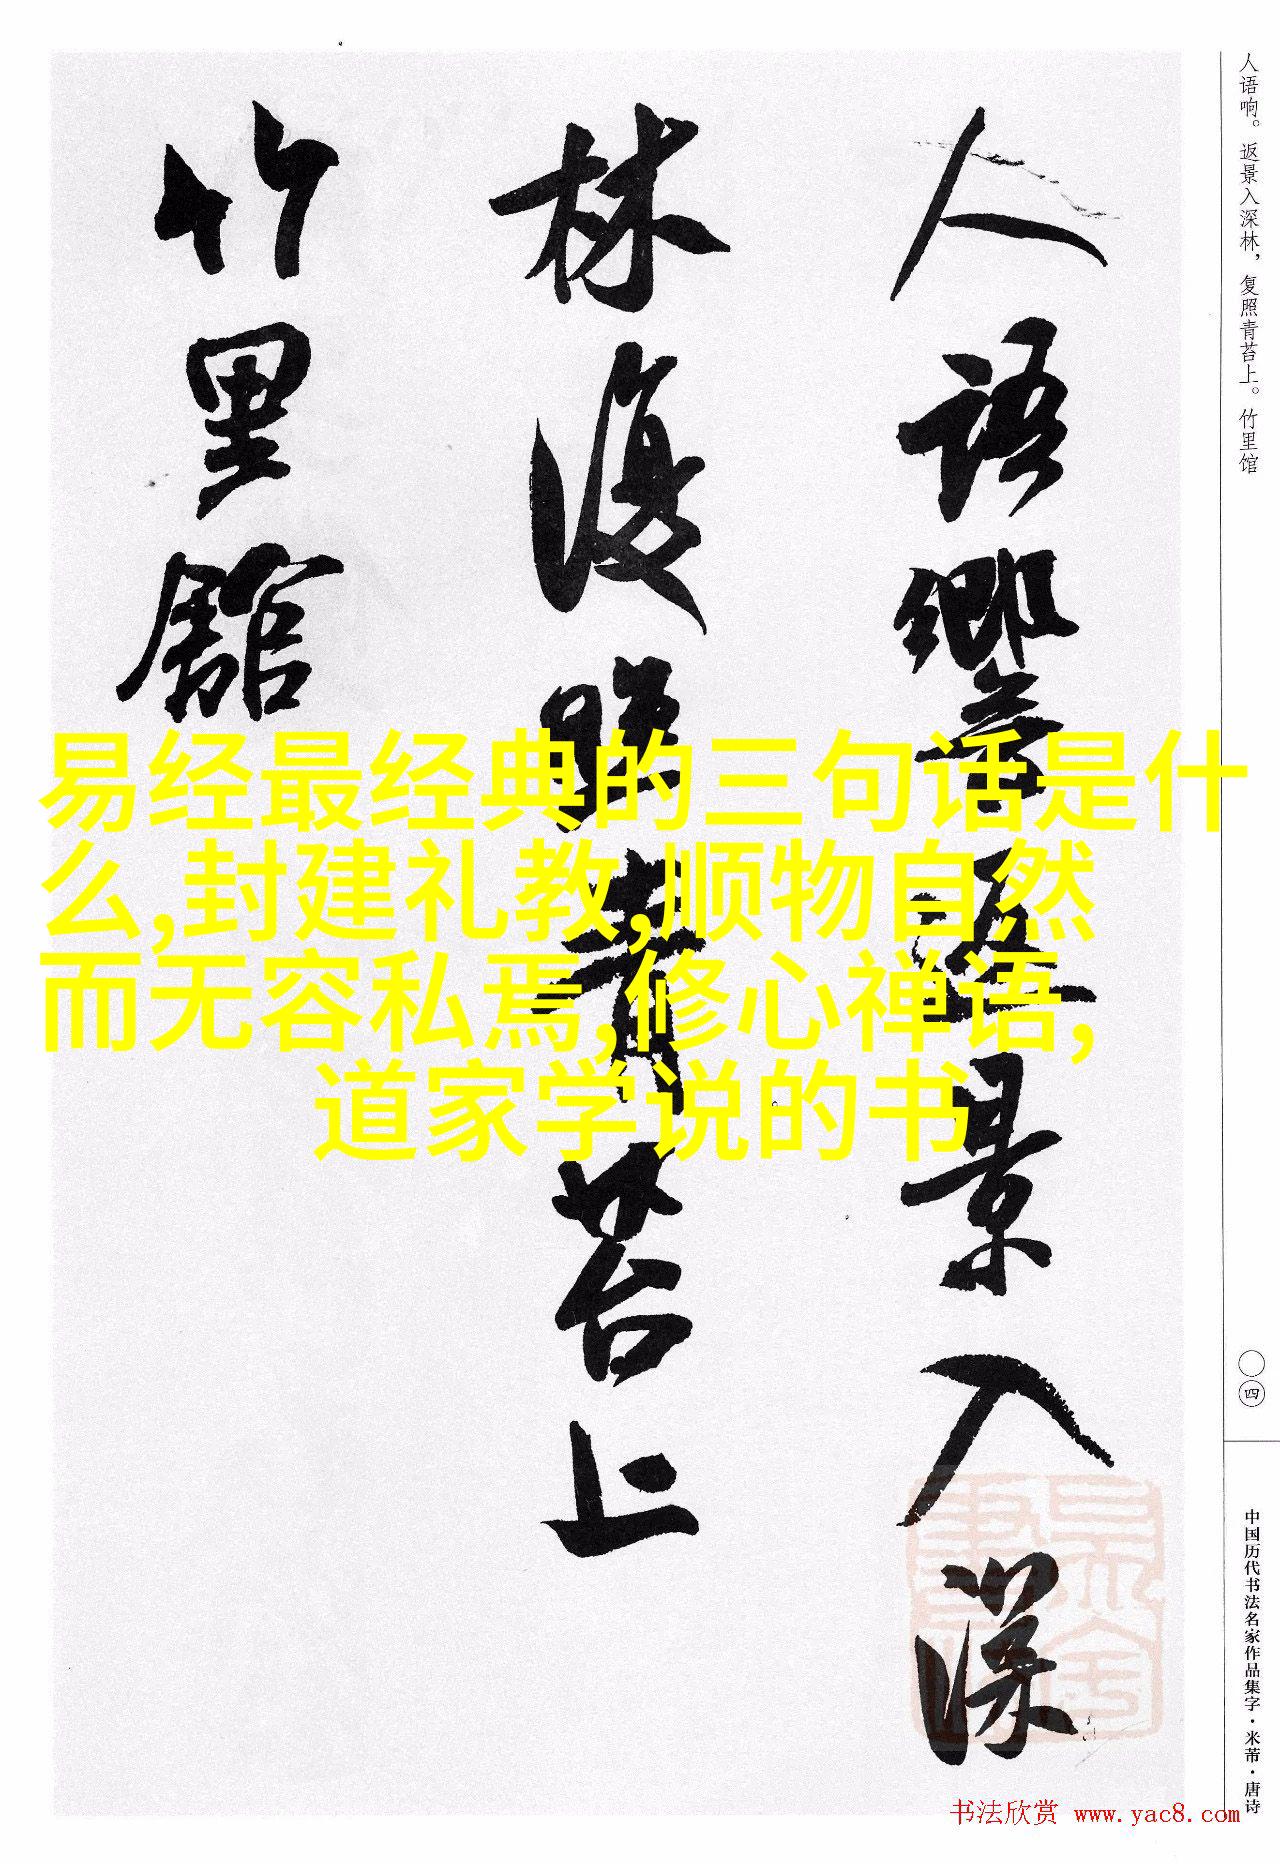 人语响。返景入深林，复照青苔上。竹里馆
人語響返景入深
林復照青苔上
竹里館
易经最经典的三句话是什
么,封建礼教,顺物自然
而无容私焉,修心禅语,
道家学说的书
〇四
中国历代书法名家作品集字·米芾·唐诗
书法欣赏 www.yac8.com